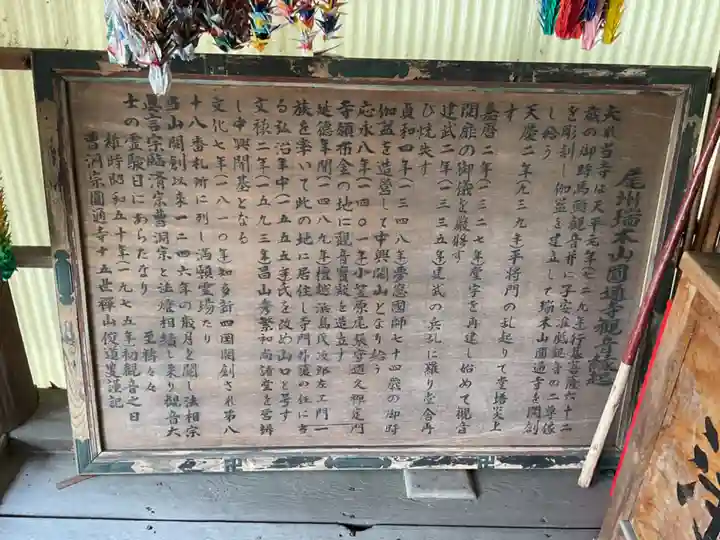 尾州瑞木山圓通寺観音縁起
夫れ当寺は天平元年(七二九年)行基菩薩六十二
歳の御時馬頭観音並に子安在観音の二尊像
を彫刻し伽藍を建立して瑞木山圓通寺を開創
し給う
天慶二年(九三九年)平将門の乱起りて堂塔炎上
す
嘉暦二年(一三二七年)堂宇を再建し始めて観音
開扉の御儀を厳修す
建武二年(一三三五年)建武の兵乱に罹り堂舎再
び焼失す
貞和四年(一三四八年)夢窓國師七十四歳の御時
伽藍を造営して中興開山となり給う
応永八年(一四〇一年)小笠原尾張守適久御定門
寺領布金の地に観音寳殿を造立す
延徳年間(一四八九年)檀越浜島氏次郎左ェ門一
族を率いて此の地に居住し寺門外護の任に当
る弘治年中(一五五五年)氏を改め山口と号す
文禄二年(一五九三年)昌山秀繁和尚諸堂を営辨
し中興開基となる
文化七年(一八一〇年)知多新四國開創され第八
十八番札所に列し満願霊場たり
当山開創以来一二四六年の歳月を閲し法相宗
真言宗臨済宗曹洞宗と法燈相続し来り観音大
士の霊験日にあらたなり 至祷々々
維時昭和五十年(一九七五年)初観音之日
曹洞宗圓通寺十五世禅山俊道叟謹記